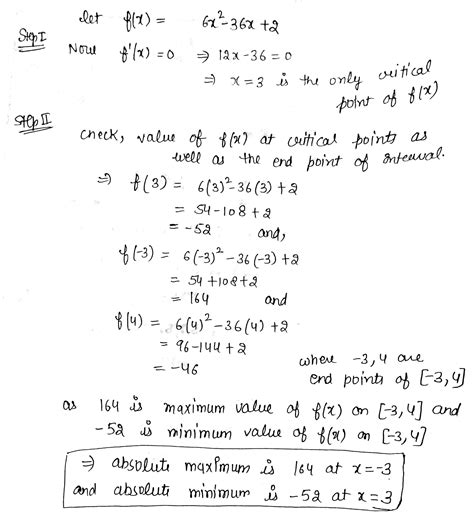 let f(x) = 6x²-36x+2
Step I
Now f'(x)=0 ⇒ 12x-36=0
⇒ x=3 is the only critical
point of f(x)
Step II
check, value of f(x) at critical points as
well as the end point of interval.
⇒ f(3) = 6(3)²-36(3)+2
= 54-108+2
= -52 and,
f(-3) = 6(-3)²-36(-3)+2
= 54+108+2
= 164 and
f(4) = 6(4)²-36(4)+2
= 96-144+2
= -46
where -3,4 are
end points of [-3,4]
as 164 is maximum value of f(x) on [-3,4] and
-52 is minimum value of f(x) on [-3,4]
⇒ absolute maximum is 164 at x=-3
and absolute minimum is -52 at x=3